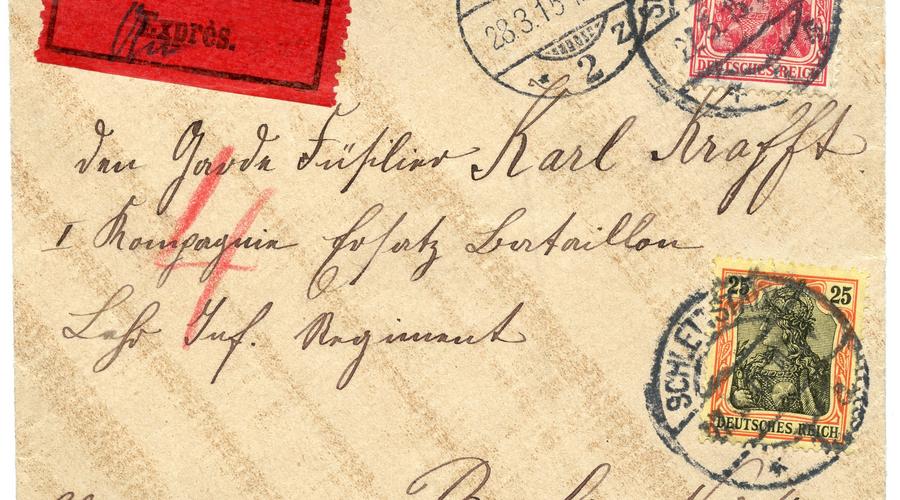 Exprès.
28.3.15
2
DEUTSCHES REICH
den Garde Füsilier Karl Krafft
I Kompagnie Ersatz Bataillon
4
Lehr Inf. Regiment
25 25
SCHLETTSTADT
DEUTSCHES REICH